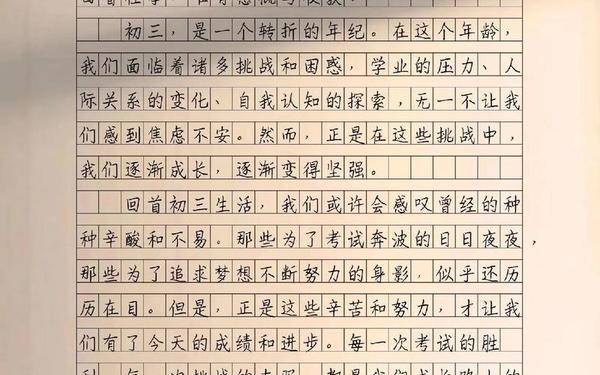 初三，是一个转折的年纪。在这个年龄，
我们面临着诸多挑战和困惑，学业的压力、人
际关系的变化、自我认知的探索，无一不让我
们感到焦虑不安。然而，正是在这些挑战中，
我们逐渐成长，逐渐变得坚强。
回首初三生活，我们或许会感叹曾经的种
种辛酸和不易。那些为了考试奔波的日日夜夜，
那些为了追求梦想不断努力的身影，似乎还历
历在目。但是，正是这些辛苦和努力，才让我
们有了今天的成绩和进步。每一次考试的胜